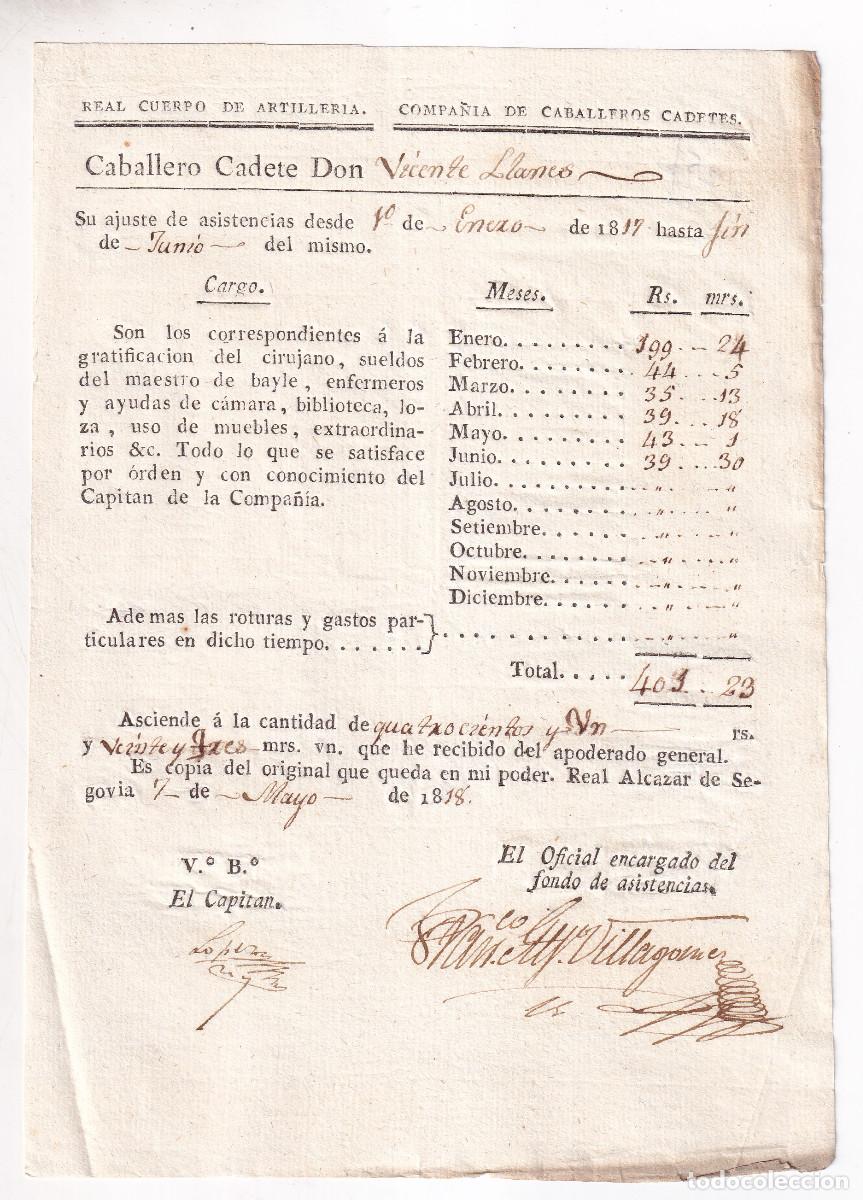 REAL CUERPO DE ARTILLERIA. COMPAÑIA DE CABALLEROS CADETES.
Caballero Cadete Don Vicente Llanes
Su ajuste de asistencias desde 1º de Enero de 1817 hasta fin
de Junio del mismo.
Cargo.
Son los correspondientes á la
gratificacion del cirujano, sueldos
del maestro de bayle, enfermeros
y ayudas de cámara, biblioteca, lo-
za, uso de muebles, extraordina-
rios &c. Todo lo que se satisface
por órden y con conocimiento del
Capitan de la Compañía.
Meses. Rs. mrs.
Enero. . . . . . . . . 199 .. 24
Febrero. . . . . . . . 44 .. 5
Marzo. . . . . . . . . 35 .. 13
Abril. . . . . . . . . 39 .. 18
Mayo. . . . . . . . . 43 .. 1
Junio. . . . . . . . . 39 .. 30
Julio. . . . . . . . . " .. "
Agosto. . . . . . . . " .. "
Setiembre. . . . . . " .. "
Octubre. . . . . . . . " .. "
Noviembre. . . . . . " .. "
Diciembre. . . . . . " .. "
Ademas las roturas y gastos par-
ticulares en dicho tiempo. . . . . . . } . . . . . . . . . " .. "
Total. . . . . 401 .. 23
Asciende á la cantidad de quatrocientos y Un rs.
y veinte y tres mrs. vn. que he recibido del apoderado general.
Es copia del original que queda en mi poder. Real Alcazar de Se-
govia 7 de Mayo de 1818.
V.º B.º
El Capitan.
El Oficial encargado del
fondo de asistencias.
Villagomez
todocoleccion